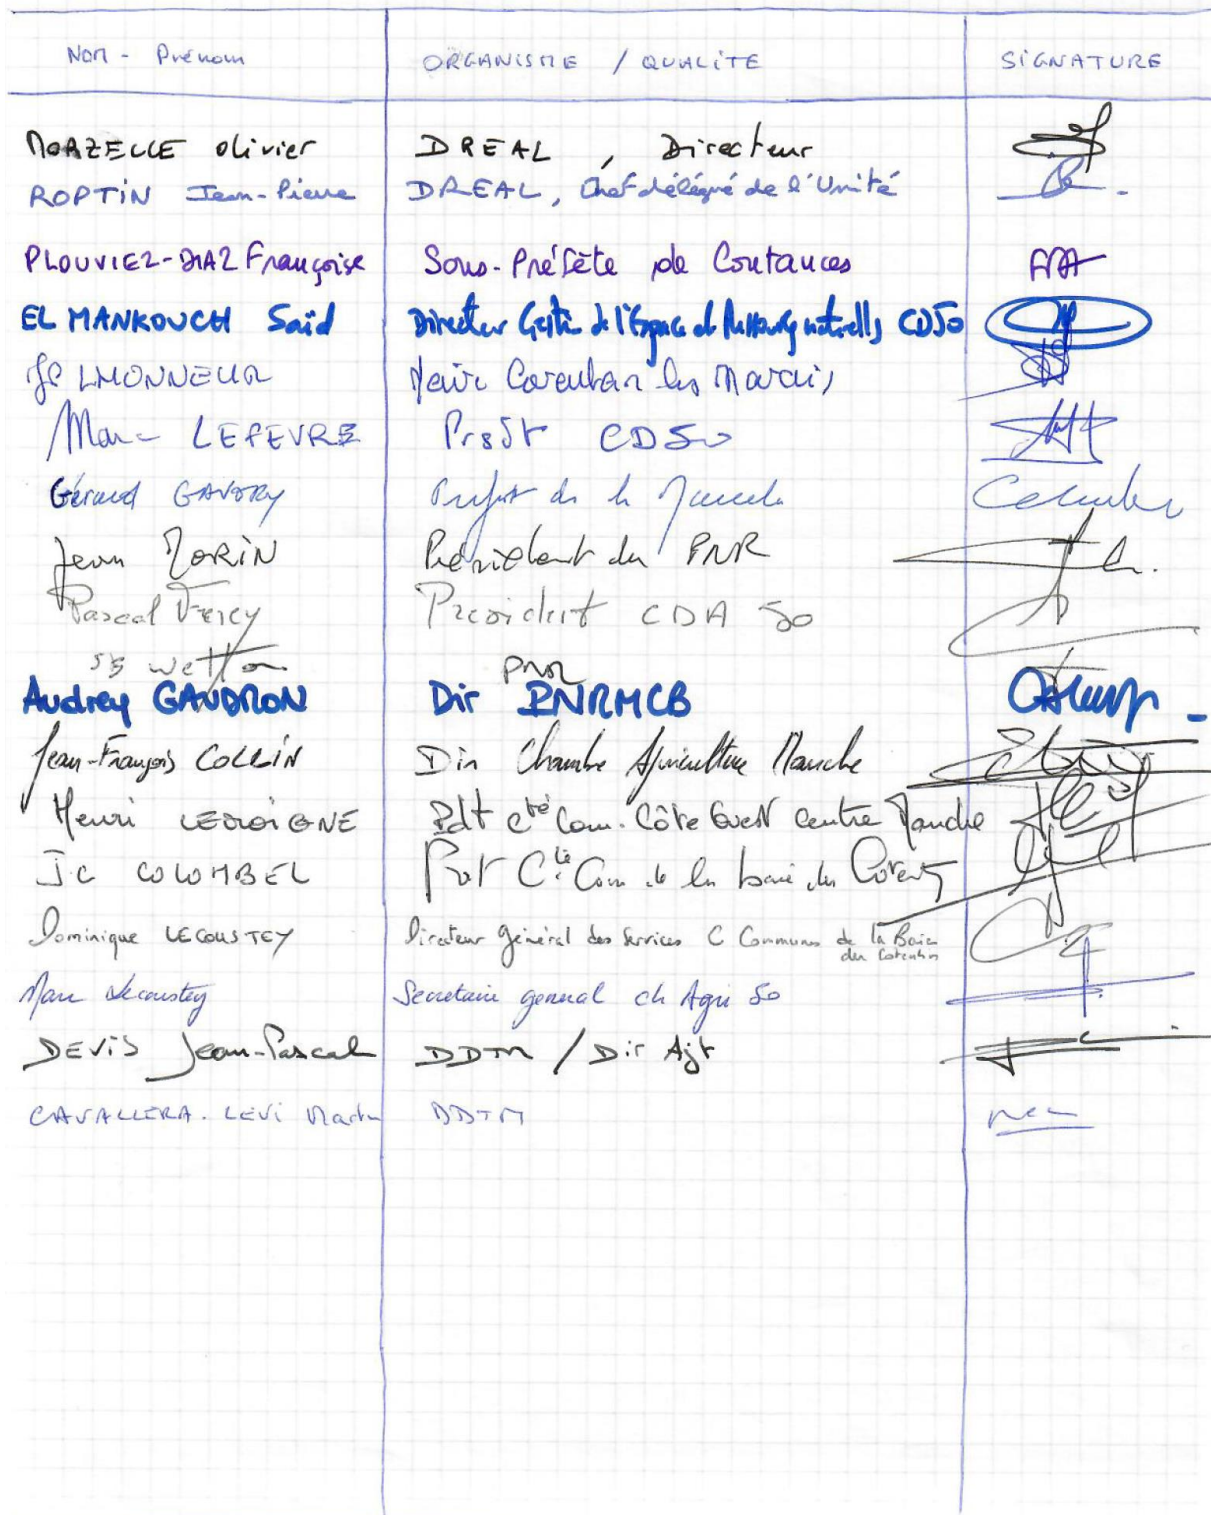 Nom - Prénom ORGANISME / QUALITE SIGNATURE
MORZELLE Olivier DREAL, Directeur
ROPTIN Jean-Pierre DREAL, Chef délégué de l'Unité
PLOUVIEZ-DIAZ Françoise Sous-Préfète de Coutances
EL MANKOUCH Saïd Directeur Gestion de l'Espace et Ressources naturelles CD50
JP LHONNEUR Maire Carentan les Marais
Marc LEFEVRE Prsdt CD50
Gérard GAVORY Préfet de la Manche
Jean MORIN Président du PNR
Pascal Ferey President CDA 50
JB Wetton PNR
Audrey GAUDRON Dir PNRMCB
Jean-François COLLIN Dir Chambre Agriculture Manche
Henri LEMOIGNE Pdt Cté Com. Côte Ouest Centre Manche
J.C COLOMBEL Cté Com de la baie du Cotentin
Dominique LECOUSTEY Directeur Général des Services C Communes de la Baie
du Cotentin
Marc Lecoustey Secretaire general ch Agri 50
DEVIS Jean-Pascal DDTM / Dir Ajt
CAVALLERA-LEVI DDTM